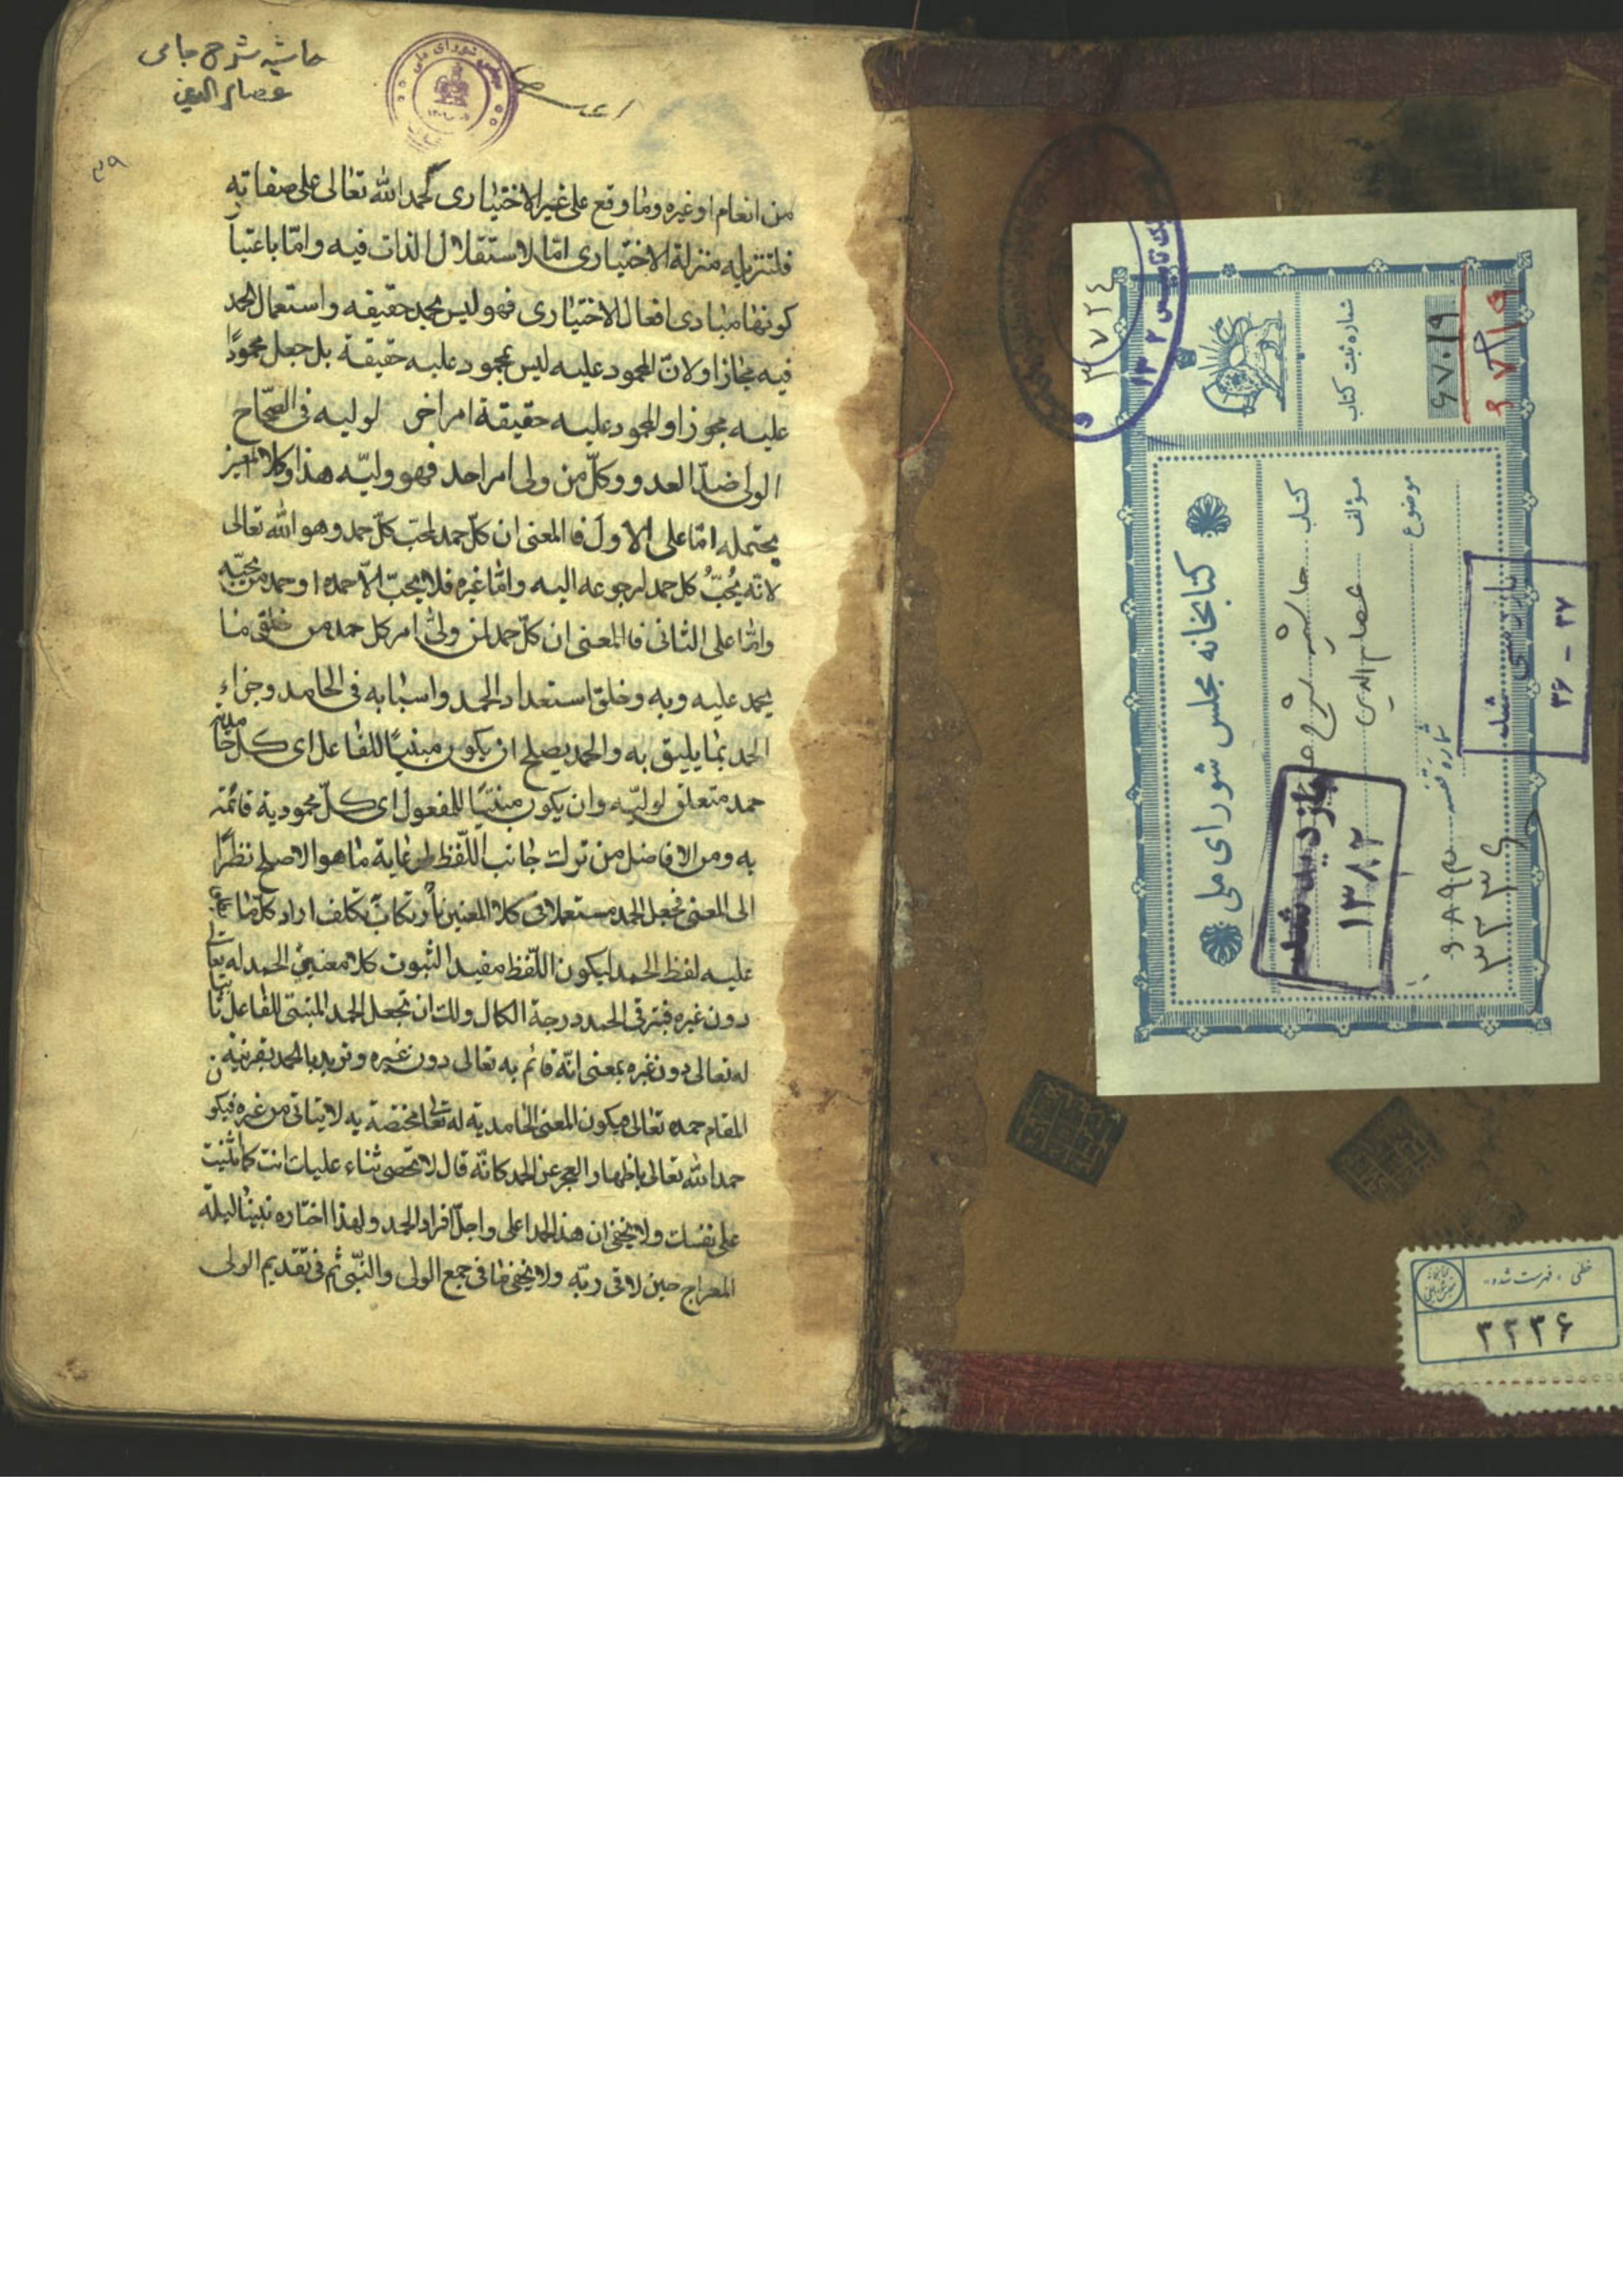 حاشیه شرح جامی
عصام الدین
من انعام او غيره وما وقع على غير الاختيارى كحمد الله تعالى على صفاته
فلتنزيله منزلة الاختيارى امّا لاستقلال الذات فيه وامّا باعتبار
كونها مبادى افعال الاختيارى فهو ليس بحمد حقيقه واستعمال الحمد
فيه مجازا ولانّ المحمود عليه ليس بمحمود عليه حقيقة بل جعل محمودًا
عليه مجوزا والمحمود عليه حقيقة امر اخر لوليه فى الصحّاح
الولى ضدّ العدو وكلّ من ولى امر احد فهو وليّه هذا وكلا
يحتمله امّا على الاول فالمعنى ان كلّ حمد لمحب كلّ حمد وهو الله تعالى
لانّه يُحبّ كل حمد لرجوعه اليه وامّا غيره فلا يحبّ الّا حمده او حمد من يحبّه
وامّا على الثانى فالمعنى ان كلّ حمد لمن ولىّ امر كل حمد من خلق ما
يحمد عليه وبه وخلق استعداد الحمد واسبابه فى الحامد وجزاء
الحمد بما يليق به والحمد يصلح ان يكون مبنيًا للفاعل اى كلّ حامدية
حمد متعلق لوليّه وان يكون مبنيّا للمفعول اى كلّ محمودية قائمة
به ومن الافاضل من ترك جانب اللّفظ لرعاية ما هو الاصلح نظرًا
الى المعنى فجعل الحمد مستعملا فى كلا المعنيين بارتكاب تكلف اراد كلّ ما
عليه لفظ الحمد ليكون اللّفظ مفيدا لثبوت كلا معنيى الحمد له تعالى
دون غيره فيترقى الحمد درجة الكمال ولك ان تجعل الحمد المبنىّ للفاعل ثابتا
له تعالى دون غيره بمعنى انّه قائم به تعالى دون غيره وتريد بالحمد بقرينة
المقام حمده تعالى فيكون المعنى الحامدية له تعالى مختصة به لا يتاتى من غيره فيكون
حمد الله تعالى باظهار العجز عن الحمد كانّه قال لا نحصى ثناء عليك انت كما اثنيت
على نفسك ولا يخفى ان هذا الحمد اعلى واجلّ افراد الحمد ولهذا اختاره نبيّنا ليلة
المعراج حين لاقى ربّه ولا يخفى ما فى جمع الولى والنبّى ثم فى تقديم الولى
کتابخانه مجلس شورای ملی
کتاب حاشیه شرح
مؤلف عصام الدین
موضوع
شماره قفسه
۳۳۳۶
شماره ثبت کتاب
۶۷۰۱۹
۳۷۲٤
بازدید شد
۱۳۸۲
بازرسی شد
۳۶ - ۳۷
خطی - فهرست شده
۳۳۳۶